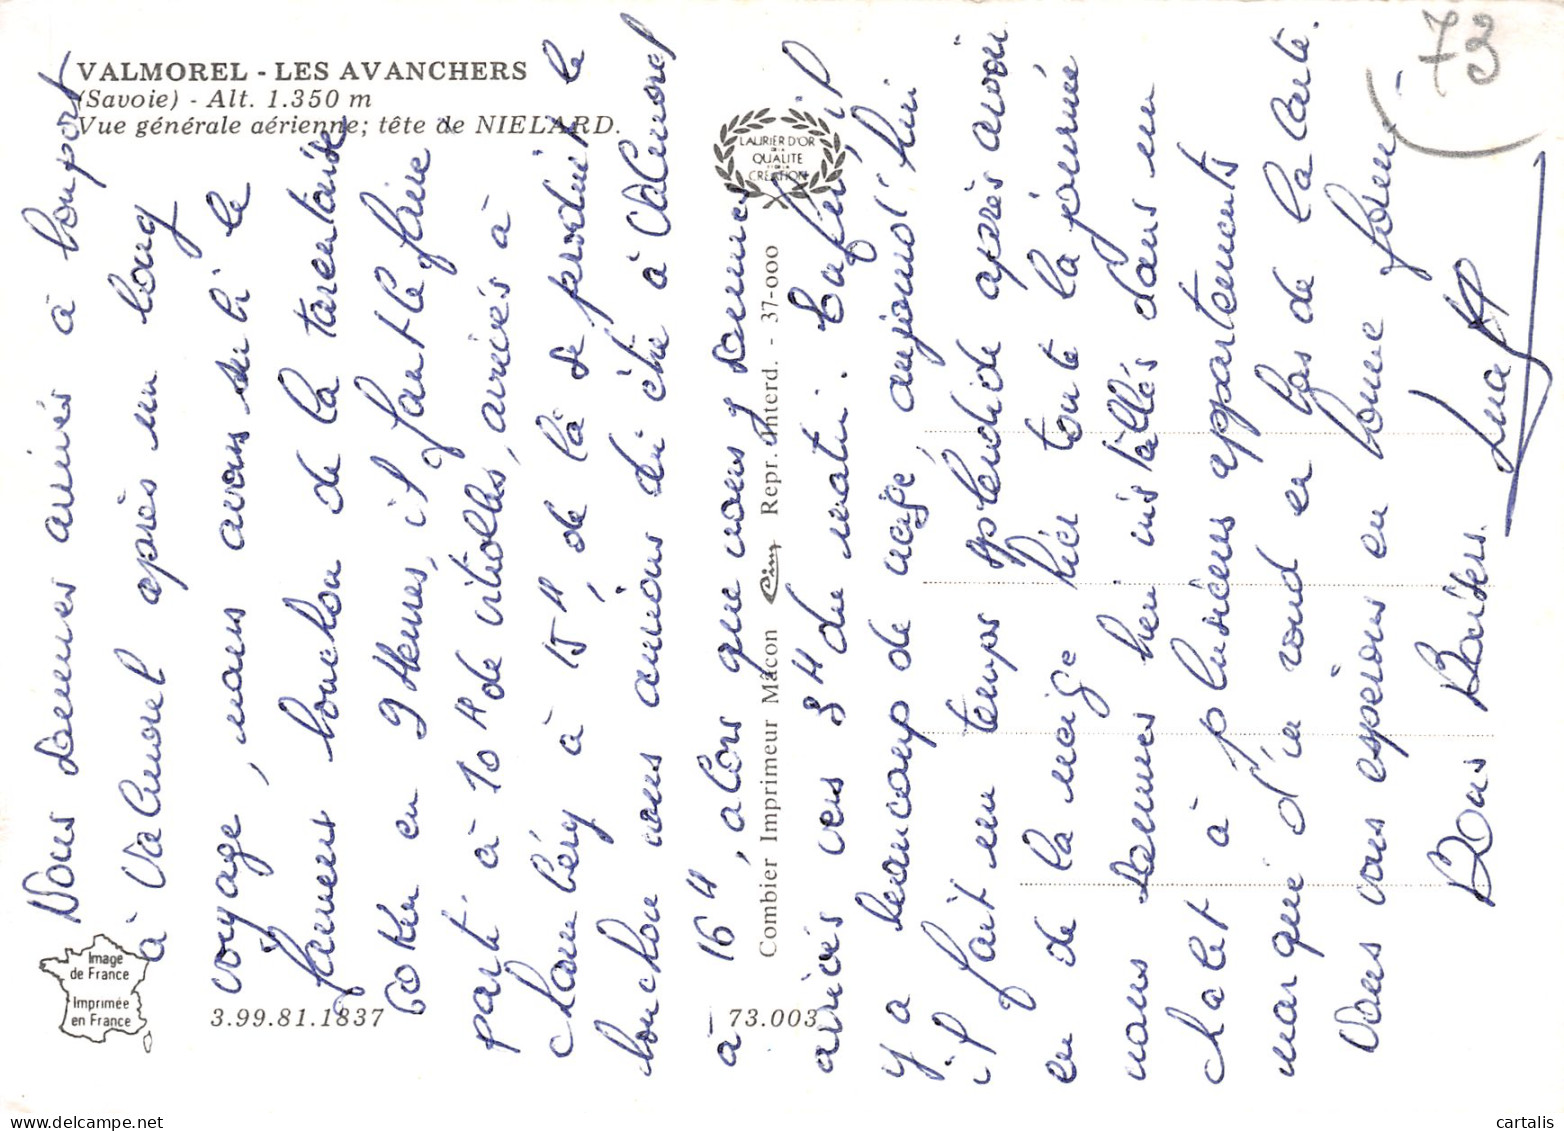 VALMOREL - LES AVANCHERS
(Savoie) - Alt. 1.350 m
Vue générale aérienne; tête de NIELARD.
LAURIER D'OR
DE LA
QUALITE
ET DE LA
CRÉATION
73
Image
de France
Imprimée
en France
3.99.81.1837
73.003
Combier Imprimeur Mâcon Cim Repr. interd. - 37-000
Nous sommes arrivés à bon port
à Valmorel après un long
voyage, nous avons subi le
fameux bouchon de la tarentaise
60 km en 9 Heures, il faut le faire
parti à 10 H de vitrolles, arrivés à
Chambéry à 15 H, de là se produit le
bouchon nous aurions dû être à Valmorel
à 16 H, alors que nous y sommes
arrivés vers 3 H du matin. Enfin, il
y a beaucoup de neige, aujourd'hui
il fait un temps splendide après avoir
eu de la neige hier toute la journée
nous sommes bien installés dans un
chalet à plusieurs appartements
marqué d'un rond en bas de la carte.
Nous vous espérons en bonne forme
Bons Baisers.